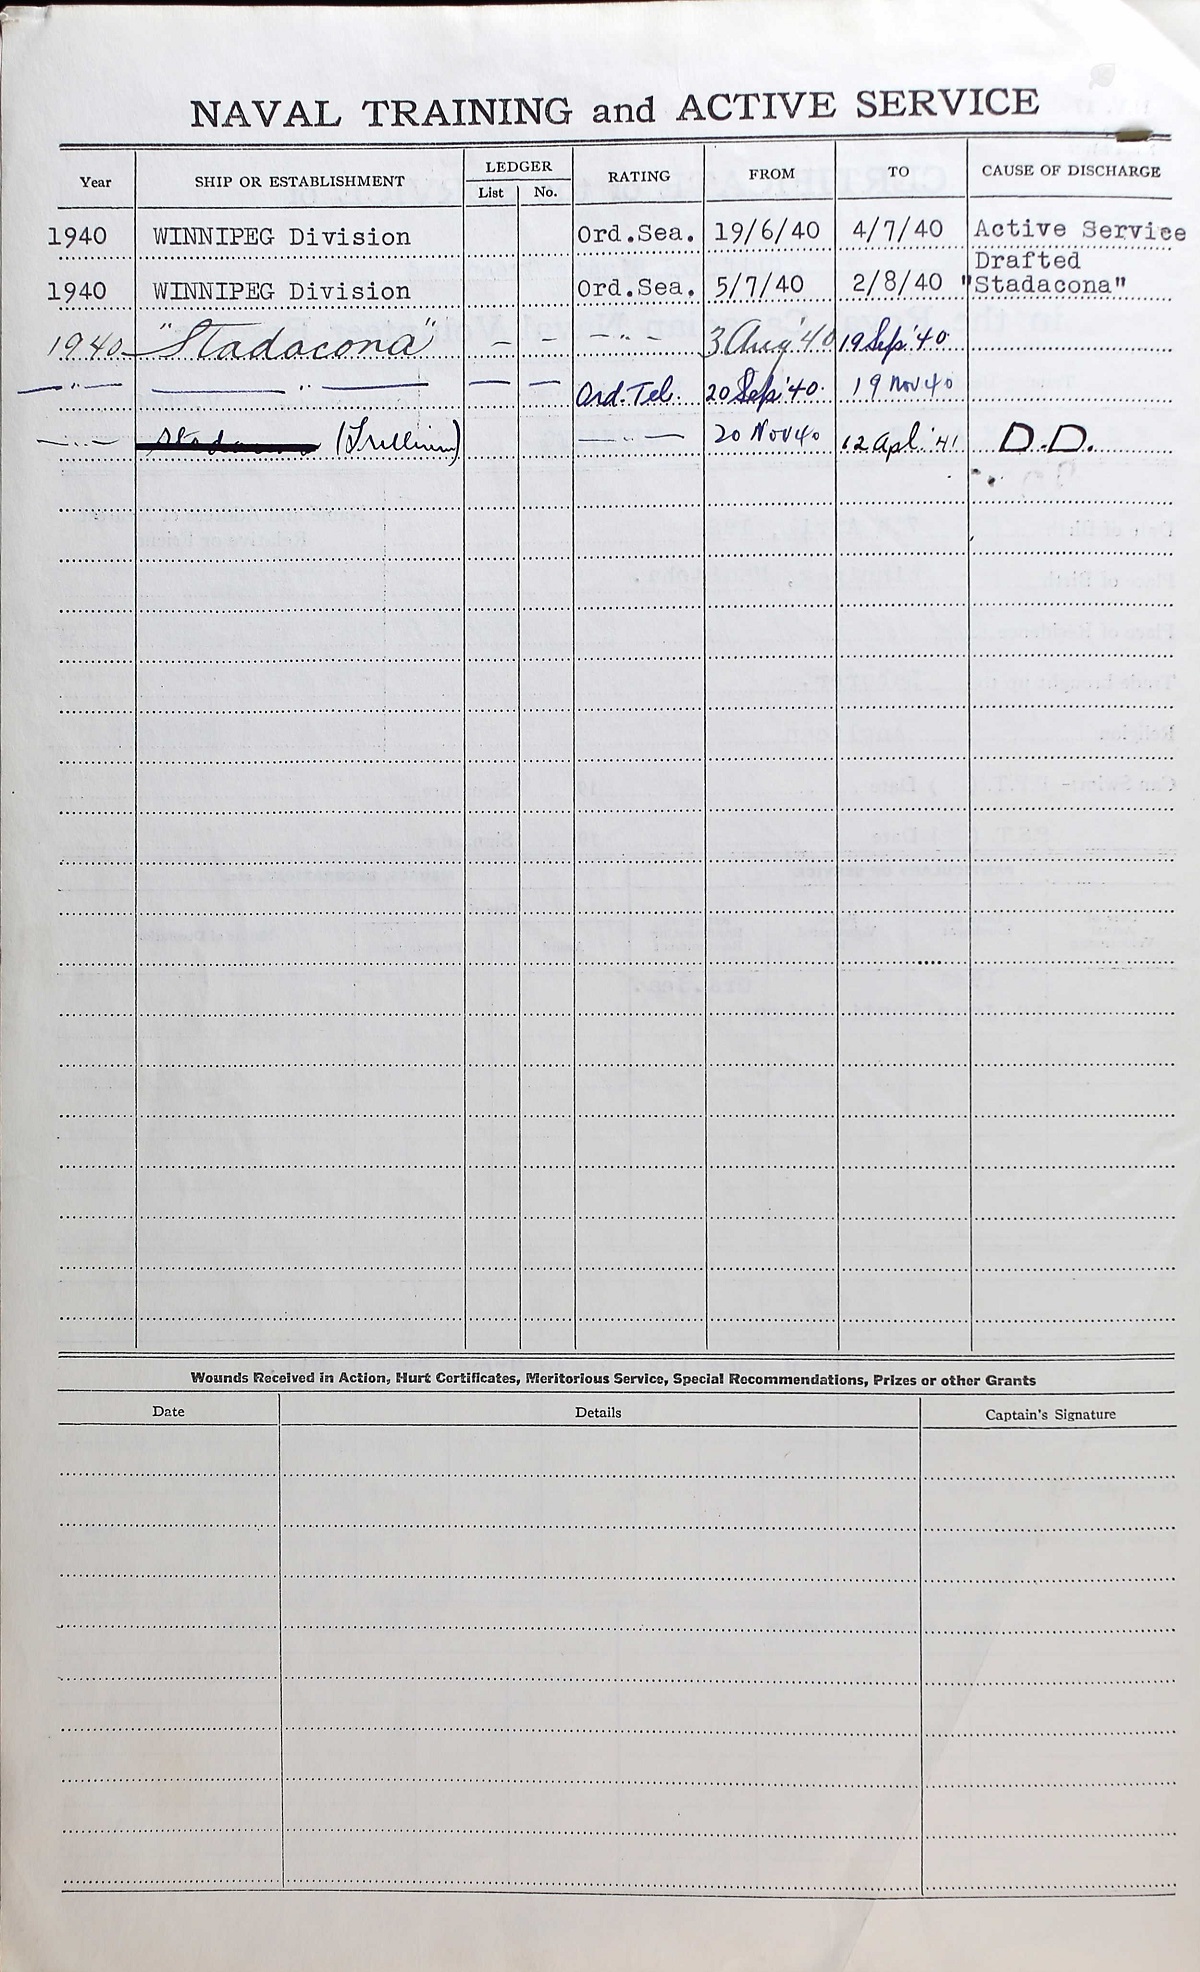 NAVAL TRAINING and ACTIVE SERVICE
Year SHIP OR ESTABLISHMENT LEDGER List No. RATING FROM TO CAUSE OF DISCHARGE
1940 WINNIPEG Division Ord.Sea. 19/6/40 4/7/40 Active Service
1940 WINNIPEG Division Ord.Sea. 5/7/40 2/8/40 Drafted "Stadacona"
1940 "Stadacona" — — — " — 3 Aug '40 19 Sep '40
— " — — " — — — Ord. Tel. 20 Sep '40 19 Nov 40
— " — (Trillium) — " — 20 Nov 40 12 Apl. '41 D.D.
Wounds Received in Action, Hurt Certificates, Meritorious Service, Special Recommendations, Prizes or other Grants
Date Details Captain's Signature